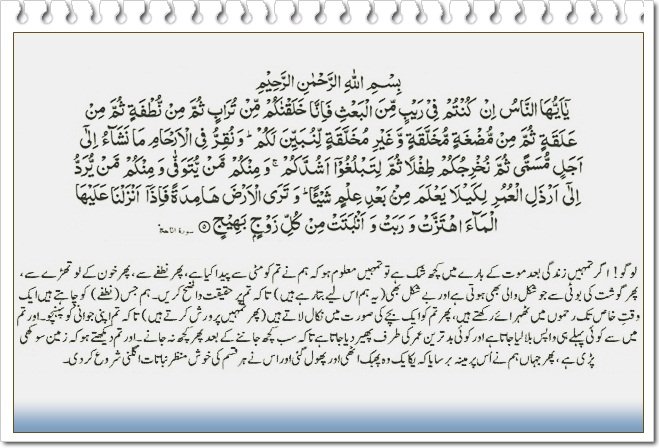 بِسْمِ اللّٰهِ الرَّحْمٰنِ الرَّحِيْمِ
يٰۤاَيُّهَا النَّاسُ اِنْ كُنْتُمْ فِيْ رَيْبٍ مِّنَ الْبَعْثِ فَاِنَّا خَلَقْنٰكُمْ مِّنْ تُرَابٍ ثُمَّ مِنْ نُّطْفَةٍ ثُمَّ مِنْ
عَلَقَةٍ ثُمَّ مِنْ مُّضْغَةٍ مُّخَلَّقَةٍ وَّ غَيْرِ مُخَلَّقَةٍ لِّنُبَيِّنَ لَكُمْ ؕ وَ نُقِرُّ فِي الْاَرْحَامِ مَا نَشَآءُ اِلٰۤى
اَجَلٍ مُّسَمًّى ثُمَّ نُخْرِجُكُمْ طِفْلًا ثُمَّ لِتَبْلُغُوْۤا اَشُدَّكُمْ ۚ وَ مِنْكُمْ مَّنْ يُّتَوَفّٰى وَ مِنْكُمْ مَّنْ يُّرَدُّ
اِلٰۤى اَرْذَلِ الْعُمُرِ لِكَيْلَا يَعْلَمَ مِنْۢ بَعْدِ عِلْمٍ شَيْـًٔا ؕ وَ تَرَى الْاَرْضَ هَامِدَةً فَاِذَاۤ اَنْزَلْنَا عَلَيْهَا
الْمَآءَ اهْتَزَّتْ وَ رَبَتْ وَ اَنْۢبَتَتْ مِنْ كُلِّ زَوْجٍۭ بَهِيْجٍ ۝۵ سورۃ الحج
لوگو! اگر تمہیں زندگی بعد موت کے بارے میں کچھ شک ہے تو تمہیں معلوم ہو کہ ہم نے تم کو مٹی سے پیدا کیا ہے، پھر نطفے سے، پھر خون کے لوتھڑے سے،
پھر گوشت کی بوٹی سے جو شکل والی بھی ہوتی ہے اور بے شکل بھی (یہ ہم اس لیے بتا رہے ہیں) تاکہ تم پر حقیقت واضح کریں۔ ہم جس (نطفے) کو چاہتے ہیں ایک
وقتِ خاص تک رحموں میں ٹھیرائے رکھتے ہیں، پھر تم کو ایک بچے کی صورت میں نکال لاتے ہیں (پھر تمہیں پرورش کرتے ہیں) تاکہ تم اپنی جوانی کو پہنچو۔ اور تم
میں سے کوئی پہلے ہی واپس بلا لیا جاتا ہے اور کوئی بدترین عمر کی طرف پھیر دیا جاتا ہے تاکہ سب کچھ جاننے کے بعد پھر کچھ نہ جانے۔ اور تم دیکھتے ہو کہ زمین سوکھی
پڑی ہے، پھر جہاں ہم نے اُس پر مینہ برسایا کہ یکایک وہ پھبک اٹھی اور پھول گئی اور اس نے ہر قسم کی خوش منظر نباتات اگلنی شروع کر دی۔